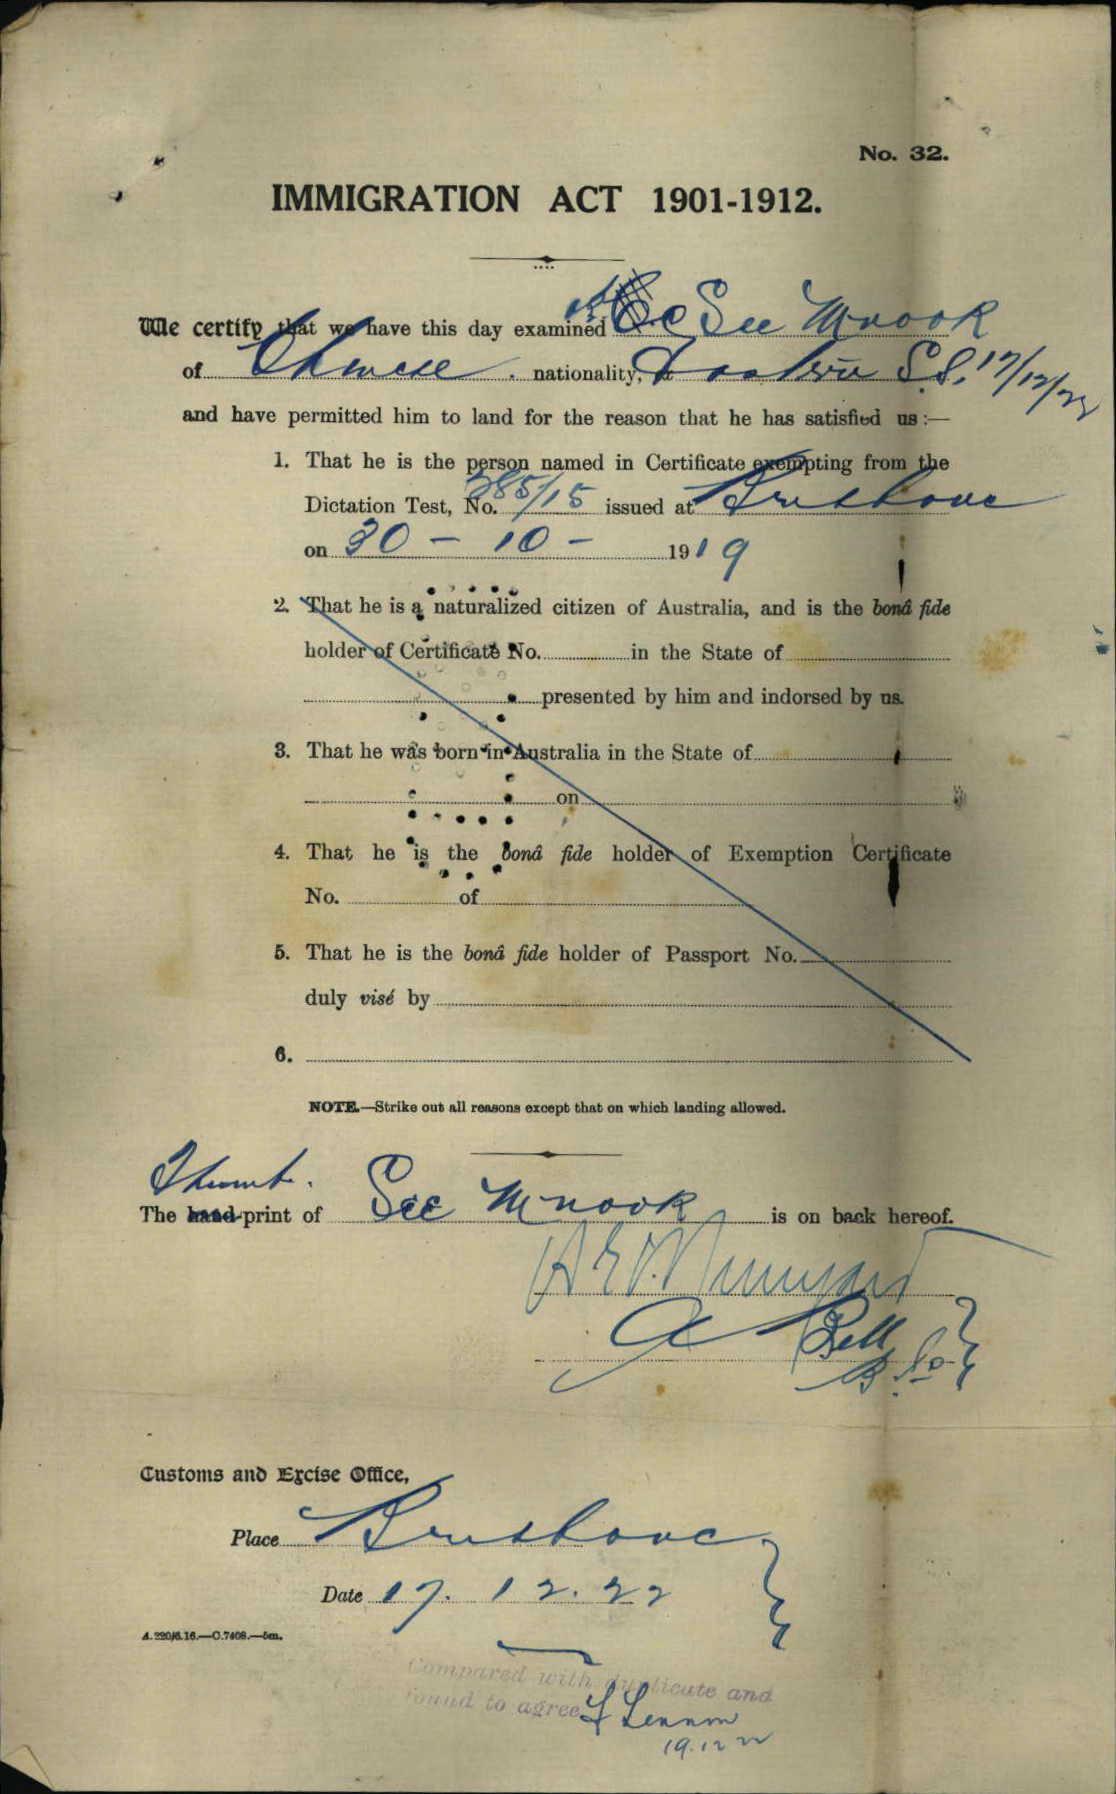 No. 32.
IMMIGRATION ACT 1901-1912.
We certify that we have this day examined See Mnook
of Chinese . nationality, S.S. 17/12/22
and have permitted him to land for the reason that he has satisfied us :—
1. That he is the person named in Certificate exempting from the
Dictation Test, No. 285/15 issued at Brisbane
on 30 - 10 - 1919
2. That he is a naturalized citizen of Australia, and is the bonâ fide
holder of Certificate No. in the State of
presented by him and indorsed by us.
3. That he was born in Australia in the State of
on
4. That he is the bonâ fide holder of Exemption Certificate
No. of
5. That he is the bonâ fide holder of Passport No.
duly visé by
6.
NOTE.—Strike out all reasons except that on which landing allowed.
Thumb.
The hand-print of See Mnook is on back hereof.
A Bell
Customs and Excise Office,
Place Brisbane
Date 17. 12. 22
A.220/6.16.—C.7408.—5m.
Compared with duplicate and
found to agree
Lennon
19.12.22